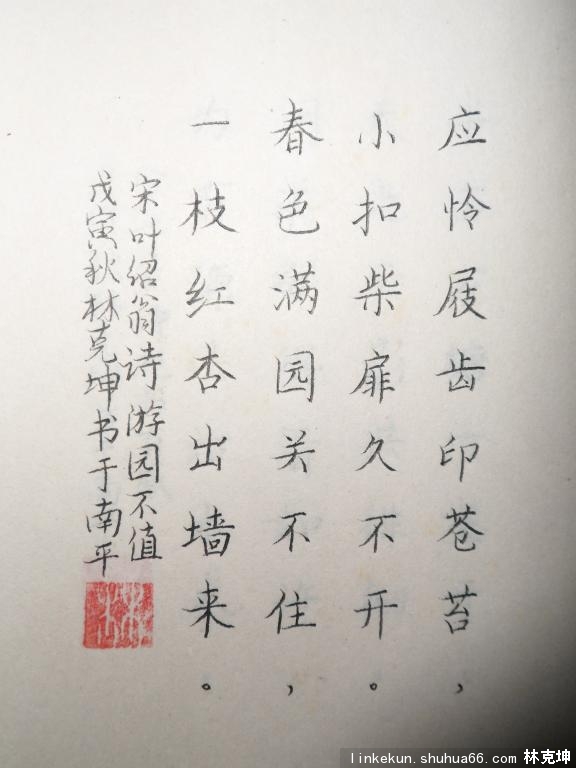 应怜屐齿印苍苔，
小扣柴扉久不开。
春色满园关不住，
一枝红杏出墙来。
宋叶绍翁诗游园不值
戊寅秋林克坤书于南平
linkekun.shuhua66.com 林克坤